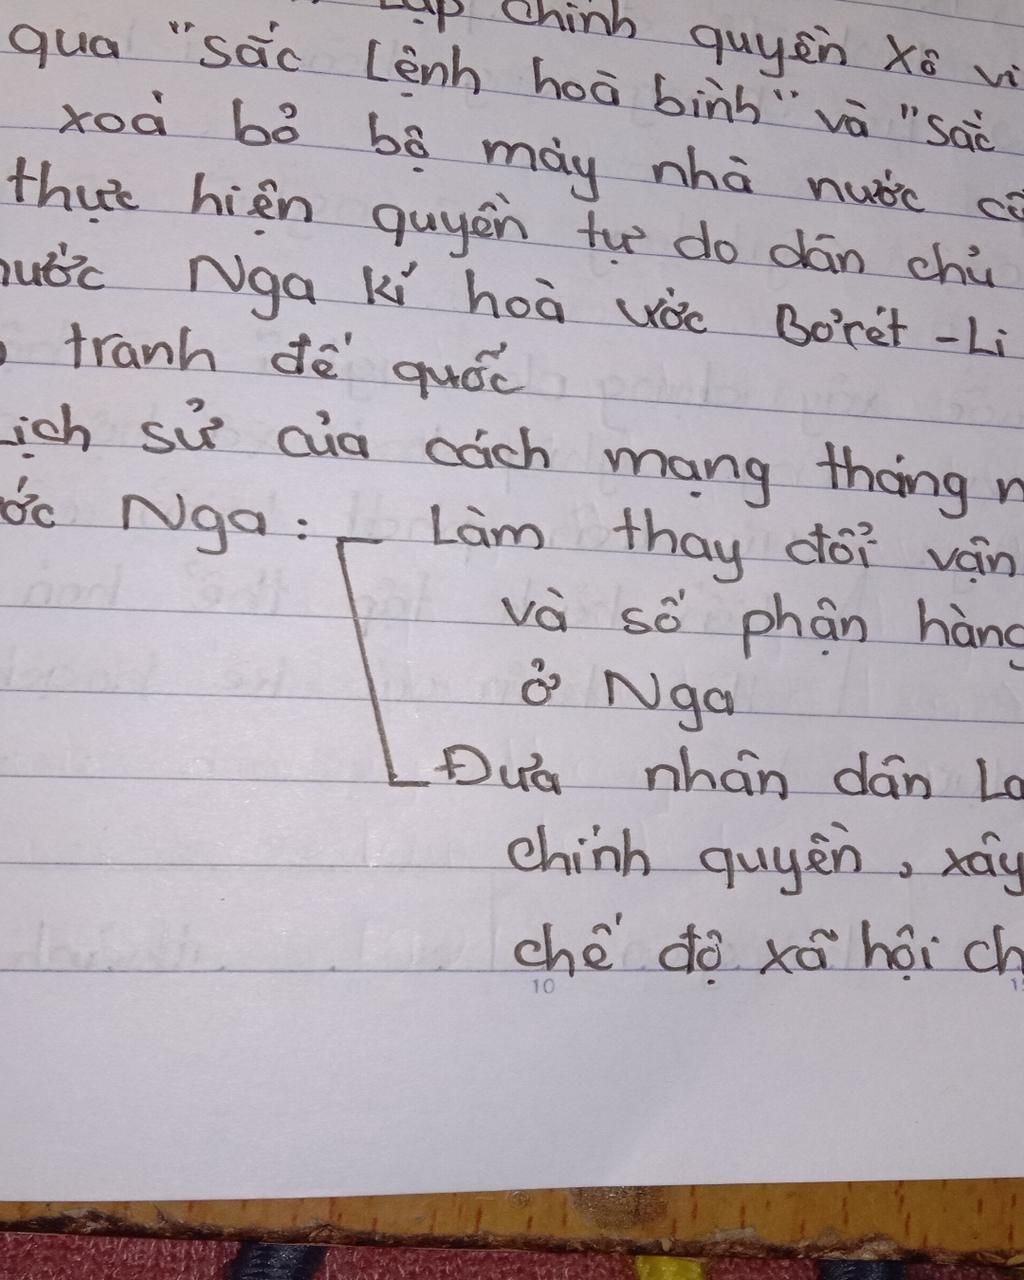 Lập chính quyền Xô vi
qua "sắc Lệnh hoà bình" và "sắc
xoá bỏ bộ máy nhà nước cũ
thực hiện quyền tự do dân chủ
nước Nga kí hoà ước Bơrét-Li
tranh đế quốc
Lịch sử của cách mạng tháng m
ớc Nga: - Làm thay đổi vận
và số phận hàng
ở Nga
Đưa nhân dân La
chính quyền, xây
chế độ xã hội ch
10